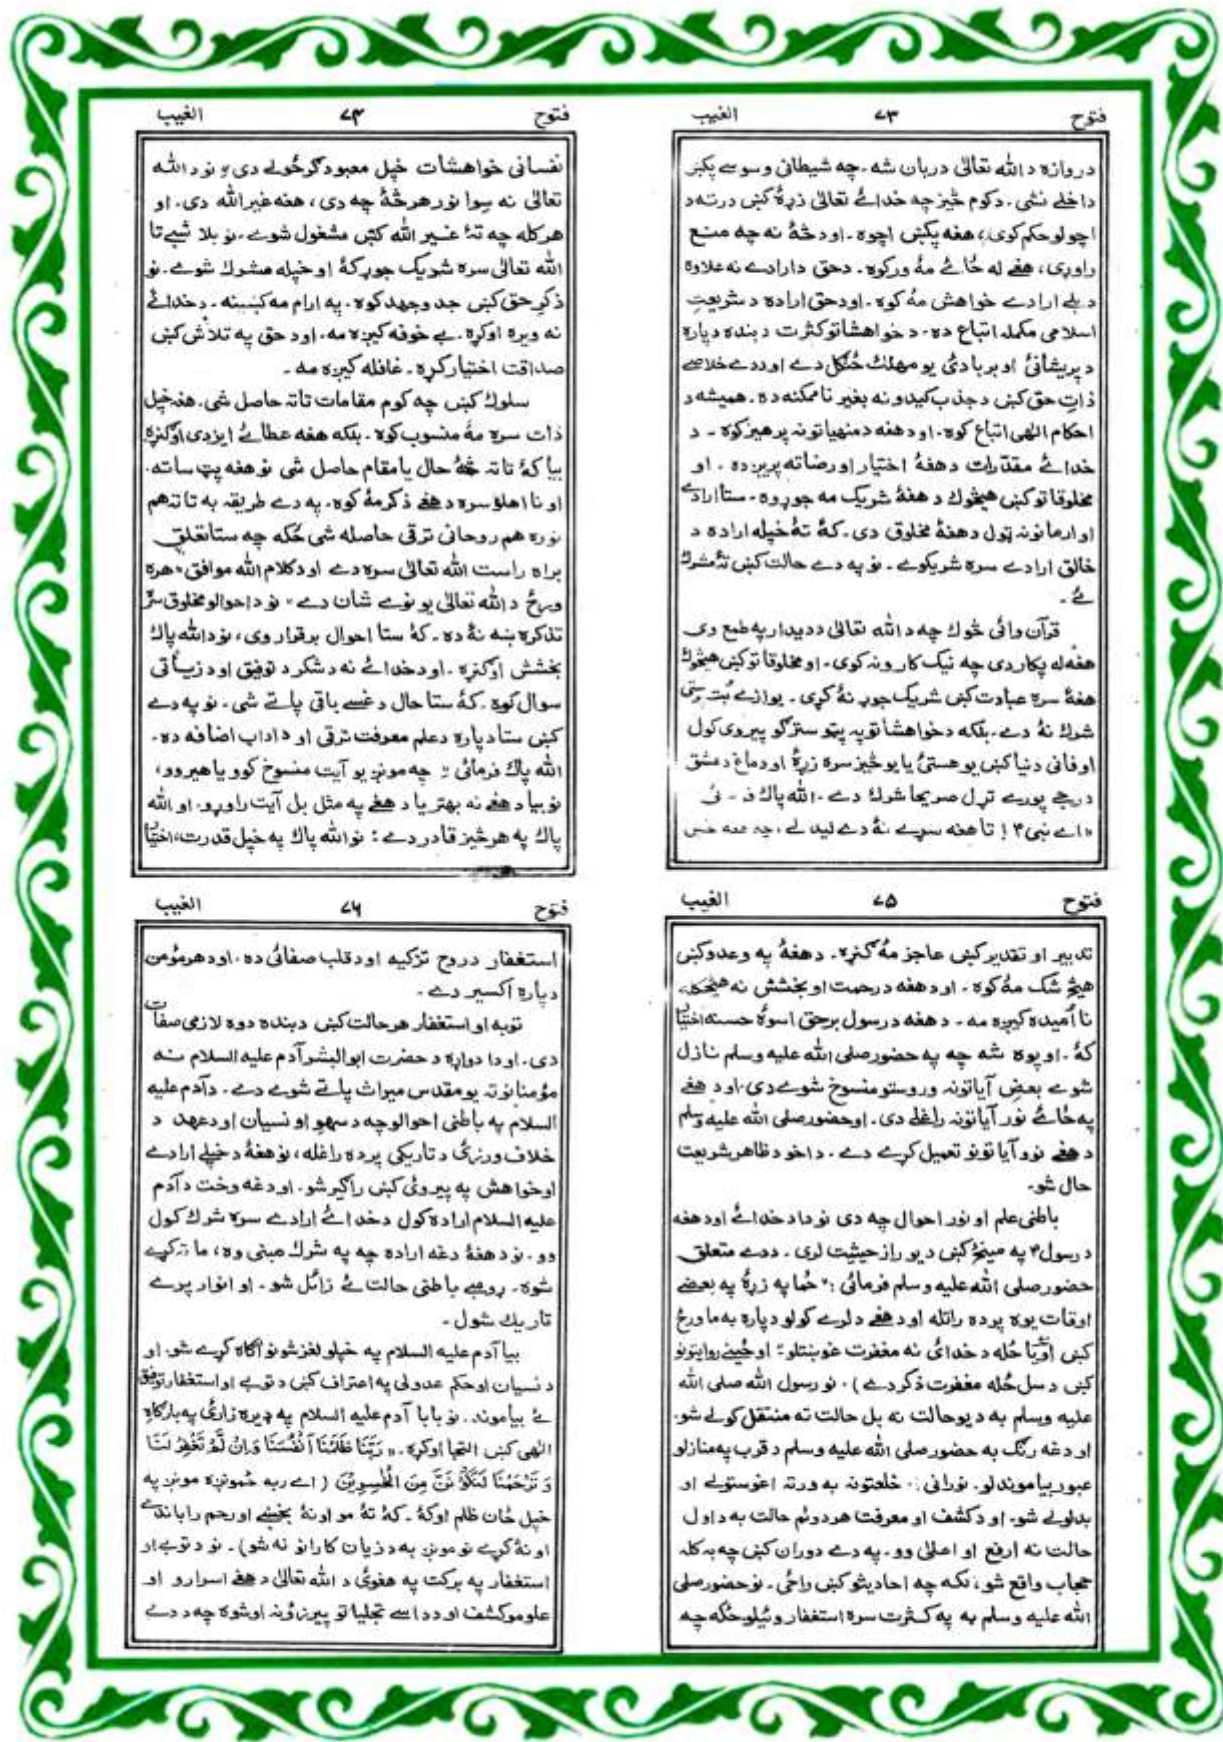 فتوح ۷۳ الغیب
دروازه د الله تعالیٰ دربان شه۔ چه شیطانی وسوسے پکښ
داخلے نشی۔ د کوم څیز چه خدائے تعالیٰ زړۀ کښ درته د
اچولو حکم کوی، هغه پکښ اچوه۔ او د څۀ نه چه منع
راوړی، هغے له ځائے مۀ ورکوه۔ د حق د ارادے نه علاوه
د بلے ارادے خواهش مۀ کوه۔ او د حق اراده د شریعتِ
اسلامی مکمله اتباع ده۔ د خواهشاتو کثرت د بنده دپاره
د پریشانئ او بربادئ یو مهلک ځنګل دے او د دے خلاصے
ذاتِ حق کښ د جذب کیدو نه بغیر ناممکنه ده۔ همیشه د
احکام الٰهی اتباع کوه۔ او د هغه د منهیاتو نه پرهیز کوه۔ د
خدائے مقدّرات د هغۀ اختیار او رضا ته پریږده۔ او
مخلوقاتو کښ هیڅوک د هغۀ شریک مه جوړوه۔ ستا ارادے
او ارمانونه ټول د هغۀ مخلوق دی۔ کۀ تۀ خپله اراده د
خالق ارادے سره شریکوے۔ نو په دے حالت کښ تۀ مشرک
ئے۔
قرآن وائی څوک چه د الله تعالیٰ د دیدار په طمع وی
هغه له پکار دی چه نیک کارونه کوی۔ او مخلوقاتو کښ هیڅوک
هغۀ سره عبادت کښ شریک جوړ نۀ کړی۔ یوازے بُت پرستی
شرک نۀ دے۔ بلکه د خواهشاتو په پټو سترګو پیروی کول
او فانی دنیا کښ یو هستئ یا یو څیز سره زړۀ او دماغ د عشق
درجے پورے تړل صریحا شرک دے۔ الله پاک فـ ـ ئی
«اے نبی ؐ! تا هغه سړے نۀ دے لیدلے، چه هغه خپل
فتوح ۷۴ الغیب
نفسانی خواهشات خپل معبود ګرځولے دی» نو د الله
تعالیٰ نه سِوا نور هر څۀ چه دی، هغه غیر الله دی۔ او
هر کله چه تۀ غیر الله کښ مشغول شوے۔ نو بلا شبے تا
الله تعالیٰ سره شریک جوړ کۀ او خپله مشرک شوے۔ نو
ذکرِ حق کښ جد و جهد کوه۔ په ارام مه کښېنه۔ د خدائے
نه ویره اوکړه۔ بے خوفه کیږه مه۔ او د حق په تلاش کښ
صداقت اختیار کړه۔ غافله کیږه مه۔
سلوک کښ چه کوم مقامات تا ته حاصل شی۔ هغه خپل
ذات سره مۀ منسوب کوه۔ بلکه هغه عطائے ایزدی اوګنړه۔
بیا کۀ تا ته څۀ حال یا مقام حاصل شی نو هغه پټ ساته۔
او نا اهلو سره د هغے ذکر مۀ کوه۔ په دے طریقه به تا ته هم
نوره هم روحانی ترقی حاصله شی ځکه چه ستا تعلق
براه راست الله تعالیٰ سره دے او د کلام الله موافق «هره
ورځ د الله تعالیٰ یو نوے شان دے» نو د احوالو مخلوق سره
تذکره ښه نۀ ده۔ کۀ ستا احوال برقرار وی، نو د الله پاک
بخشش اوګنړه۔ او د خدائے نه د شکر د توفیق او د زیاتی
سوال کوه۔ کۀ ستا حال دغسے باقی پاتے شی۔ نو په دے
کښ ستا دپاره د علم معرفت ترقی او د اداب اضافه ده۔
الله پاک فرمائی: چه مونږ یو آیت منسوخ کوو یا هیروو،
نو بیا د هغے نه بهتر یا د هغے په مثل بل آیت راوړو۔ او الله
پاک په هر څیز قادر دے: نو الله پاک په خپل قدرت، اختیار
فتوح ۷۵ الغیب
تدبیر او تقدیر کښ عاجز مۀ ګنړه۔ د هغۀ په وعدو کښ
هیڅ شک مۀ کوه۔ او د هغه د رحمت او بخشش نه هیڅکله
نا اُمیده کیږه مه۔ د هغه د رسول برحق اسوۀ حسنه اختیار
کۀ۔ او پوه شه چه په حضور صلی الله علیه وسلم نازل
شوے بعض آیاتونه وروستو منسوخ شوے دی۔ او د هغے
په ځائے نور آیاتونه راغلے دی۔ او حضور صلی الله علیه وسلم
د هغے نورو آیاتونو تعمیل کړے دے۔ دا خو د ظاهر شریعت
حال شو۔
باطنی علم او نور احوال چه دی نو دا د خدائے او د هغه
د رسول ؐ په مینځ کښ د یو راز حیثیت لری۔ د دے متعلق
حضور صلی الله علیه وسلم فرمائی: "ځما په زړۀ په بعضے
اوقات یوه پرده راتله او د هغے د لرے کولو دپاره به ما ورځ
کښ اویا ځله د خدائ نه مغفرت غوښتلو: او ځینے روایتونو
کښ د سل ځله مغفرت ذکر دے)۔ نو رسول الله صلی الله
علیه وسلم به د یو حالت نه بل حالت ته منتقل کولے شو۔
او دغه رنګ به حضور صلی الله علیه وسلم د قرب په منازلو
عبور بیا موندلو۔ نورانی خلعتونه به ورته اغوستولے او
بدلولے شو۔ او د کشف او معرفت هر دوئم حالت به د اول
حالت نه ارفع او اعلیٰ وو۔ په دے دوران کښ چه به کله
حجاب واقع شو، لکه چه احادیثو کښ راځی۔ نو حضور صلی
الله علیه وسلم به په کثرت سره استغفار وئیلو ځکه چه
فتوح ۷۶ الغیب
استغفار د روح تزکیه او د قلب صفائی ده۔ او د هر مؤمن
دپاره اکسیر دے۔
توبه او استغفار هر حالت کښ د بنده دوه لازمی صفات
دی۔ او دا دواړه د حضرت ابو البشر آدم علیه السلام نه
مؤمنانو ته یو مقدس میراث پاتے شوے دے۔ د آدم علیه
السلام په باطنی احوالو چه د سهو او نسیان او د عهد د
خلاف ورزئ د تاریکی پرده راغله، نو هغۀ د خپلے ارادے
او خواهش په پیروئ کښ راګیر شو۔ او دغه وخت د آدم
علیه السلام اراده کول د خدائے ارادے سره شرک کول
وو۔ نو د هغۀ دغه اراده چه په شرک مبنی وه، ماته کړے
شوه۔ ړومبے باطنی حالت ئے زائل شو۔ او انوار پرے
تاریک شول۔
بیا آدم علیه السلام په خپلو لغزشونو آګاه کړے شو۔ او
د نسیان او حکم عدولی په اعتراف کښ د توبے او استغفار توفیق
ئے بیا موند۔ نو بابا آدم علیه السلام په ډیره زارئ په بارګاهِ
الٰهی کښ التجا اوکړه۔ «رَبَّنَا ظَلَمْنَا اَنْفُسَنَا وَاِنْ لَّمْ تَغْفِرْ لَنَا
وَ تَرْحَمْنَا لَنَكُوْنَنَّ مِنَ الْخٰسِرِيْنَ (اے ربه ځمونږه مونږ په
خپل ځان ظلم اوکۀ۔ کۀ تۀ مو اونۀ بخښے او رحم راباندے
اونۀ کړے نو مونږ به د زیان کارانو نه شو)۔ نو د توبے او
استغفار په برکت په هغوئ د الله تعالیٰ د هغے اسرارو او
علومو کشف او د داسے تجلیاتو پیرزونه اوشوه چه د دے